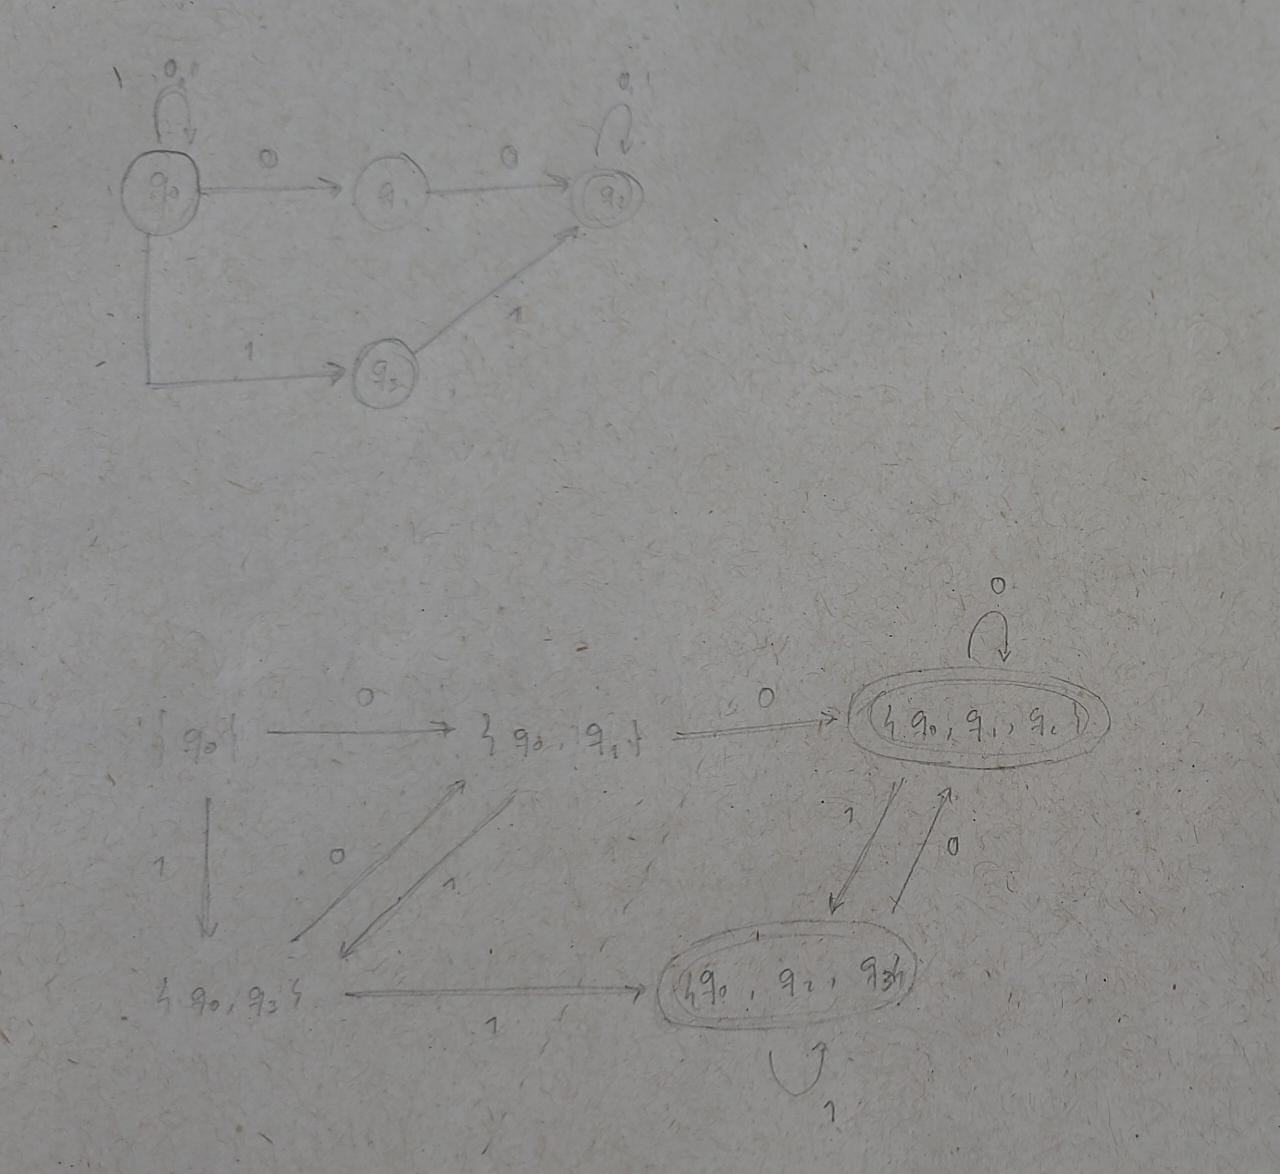 0,1 0,1
q0 0 q1 0 q2
1 q3 1
0
{q0} 0 {q0, q1} 0 {q0, q1, q2}
1 0 1 1 0
{q0, q3} 1 {q0, q2, q3}
1